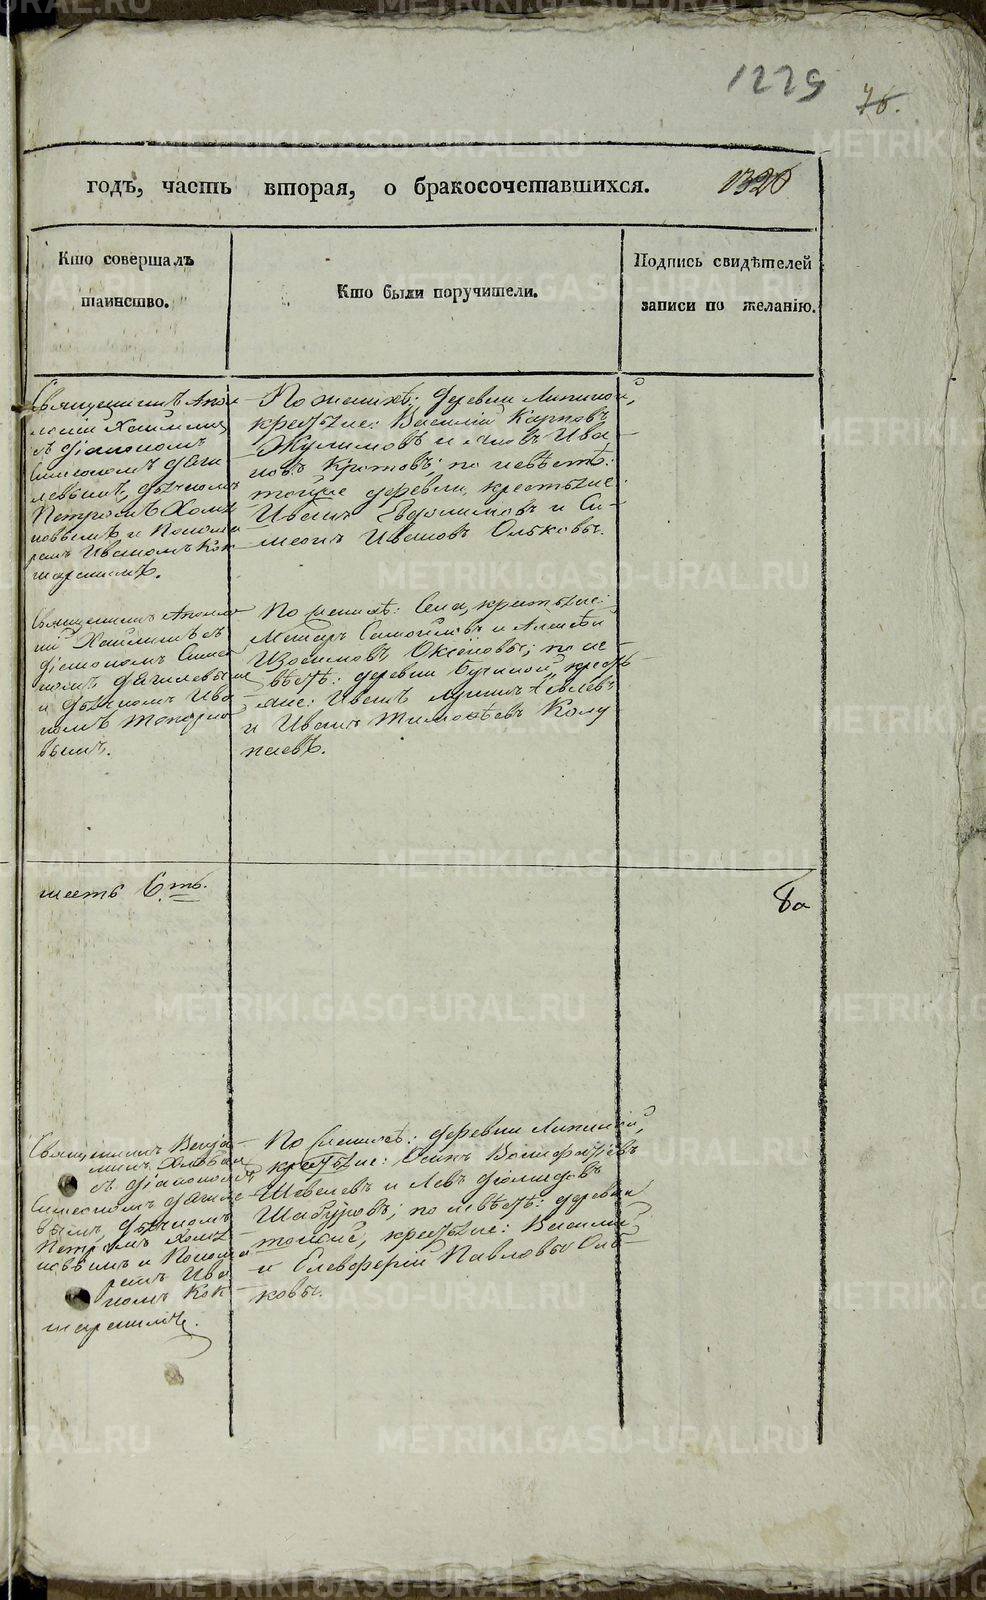 1229
76.
годъ, часть вторая, о бракосочетавшихся.
1326
Кто совершалъ
таинство.
Кто были поручители.
Подпись свидѣтелей
записи по желанію.
Священникъ Апол
съ діакономъ
Симеономъ Дяги
левымъ, дьячкомъ
Петромъ Холм
новымъ и Понома
ремъ Иваномъ Кок
шарскимъ.
По женихѣ: деревни Липиной,
крестьяне: Василій Карповъ
и Ива
новъ Кротовъ; по невѣстѣ:
тойже деревни, крестьяне:
Иванъ Евдокимовъ и Си-
меонъ Ивановъ Ольковы.
Священникъ Аполло
ній съ
діакономъ Симео
номъ Дягилевымъ
и дьячкомъ Ива
номъ Топорко
вымъ.
По женихѣ: Села, крестьяне:
Самойловъ и Алексѣй
Изосимовъ; по не
вѣстѣ: деревни Бучиной крестья
яне: Иванъ
и Иванъ Тимоѳеевъ Колу
паевъ.
шесть 6.ть.
8а
Священникъ Венја-
минъ
съ діакономъ
Симеономъ Дягиле
вымъ, дьячкомъ
Петромъ Холм
новымъ и Понома
ремъ Ива
номъ Кок
шарскимъ.
По женихѣ: деревни Липиной,
крестьяне: Осипъ Вонифатіевъ
Шевелевъ и Левъ Діомидовъ
Шабуровъ; по невѣстѣ: деревни
тойже, крестьяне: Василій
и Елевферій Павловы Оль-
ковы.
METRIKI.GASO-URAL.RU